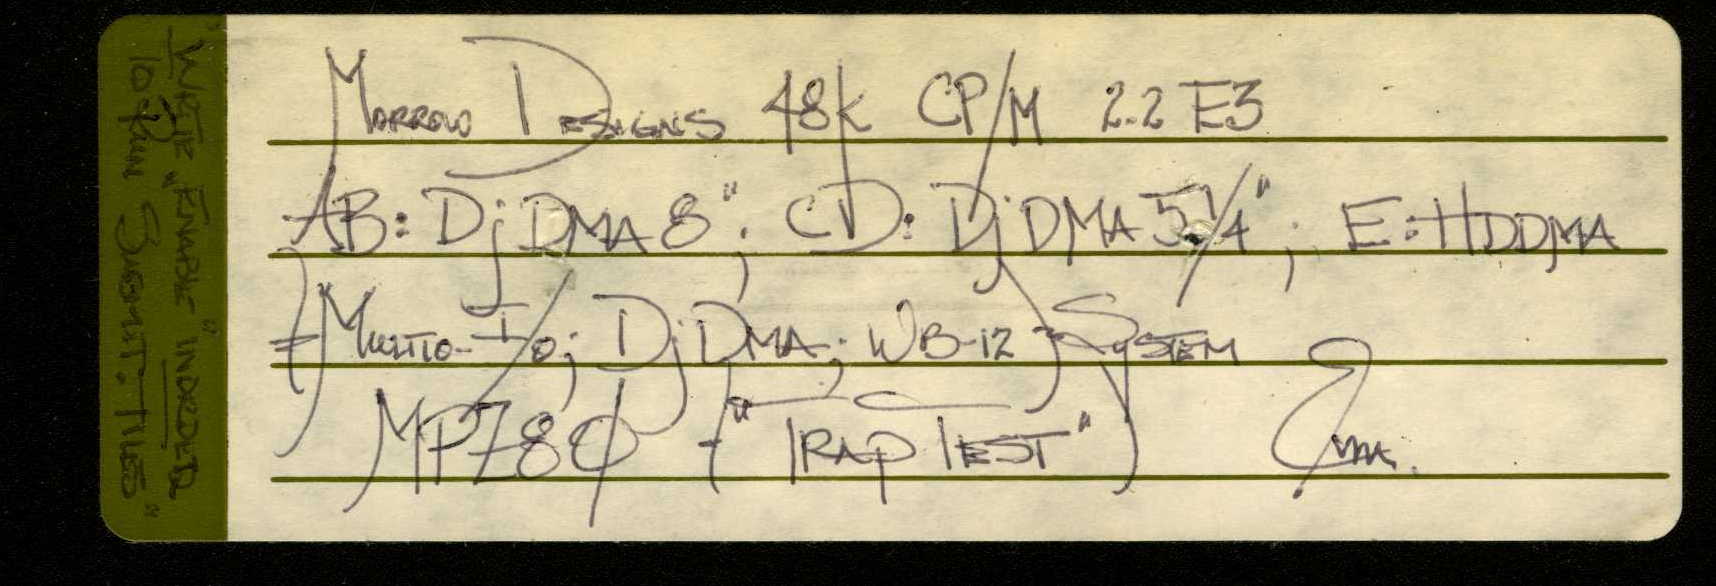 "WRITE "ENABLE" IN ORDER
to RUN SUBMIT. FILES"
MORROW DESIGNS 48K CP/M 2.2 E3
AB: DjDMA 8"; CD: DjDMA 5¼"; E: HDDMA
{MULTIO-I/O; DjDMA; WB-12} SYSTEM
MPZ80 {"TRAP TEST"}